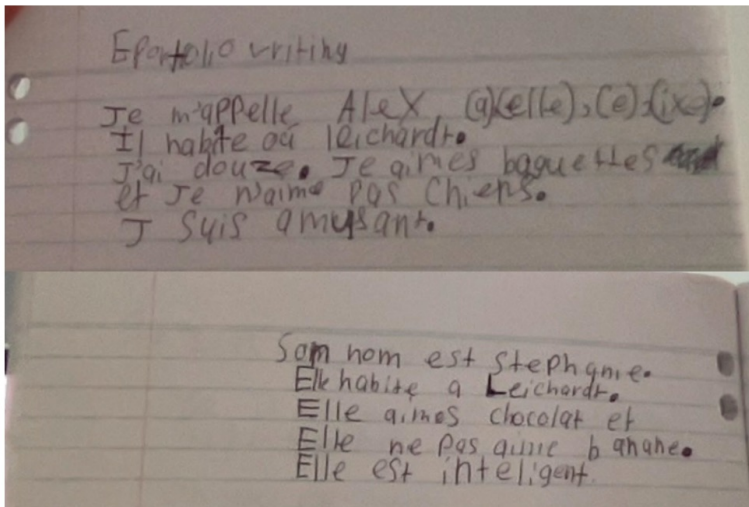 Eportfolio writing
Je m'appelle Alex (a)(elle),(e),(ixe).
Il habite où leichardt.
J'ai douze. Je aimes baguettes
et Je n'aime pas Chiens.
J suis amusant.
Som nom est Stephanie.
Elle habite a Leichardt.
Elle aimes chocolat et
Elle ne pas aime banane.
Elle est inteligent.